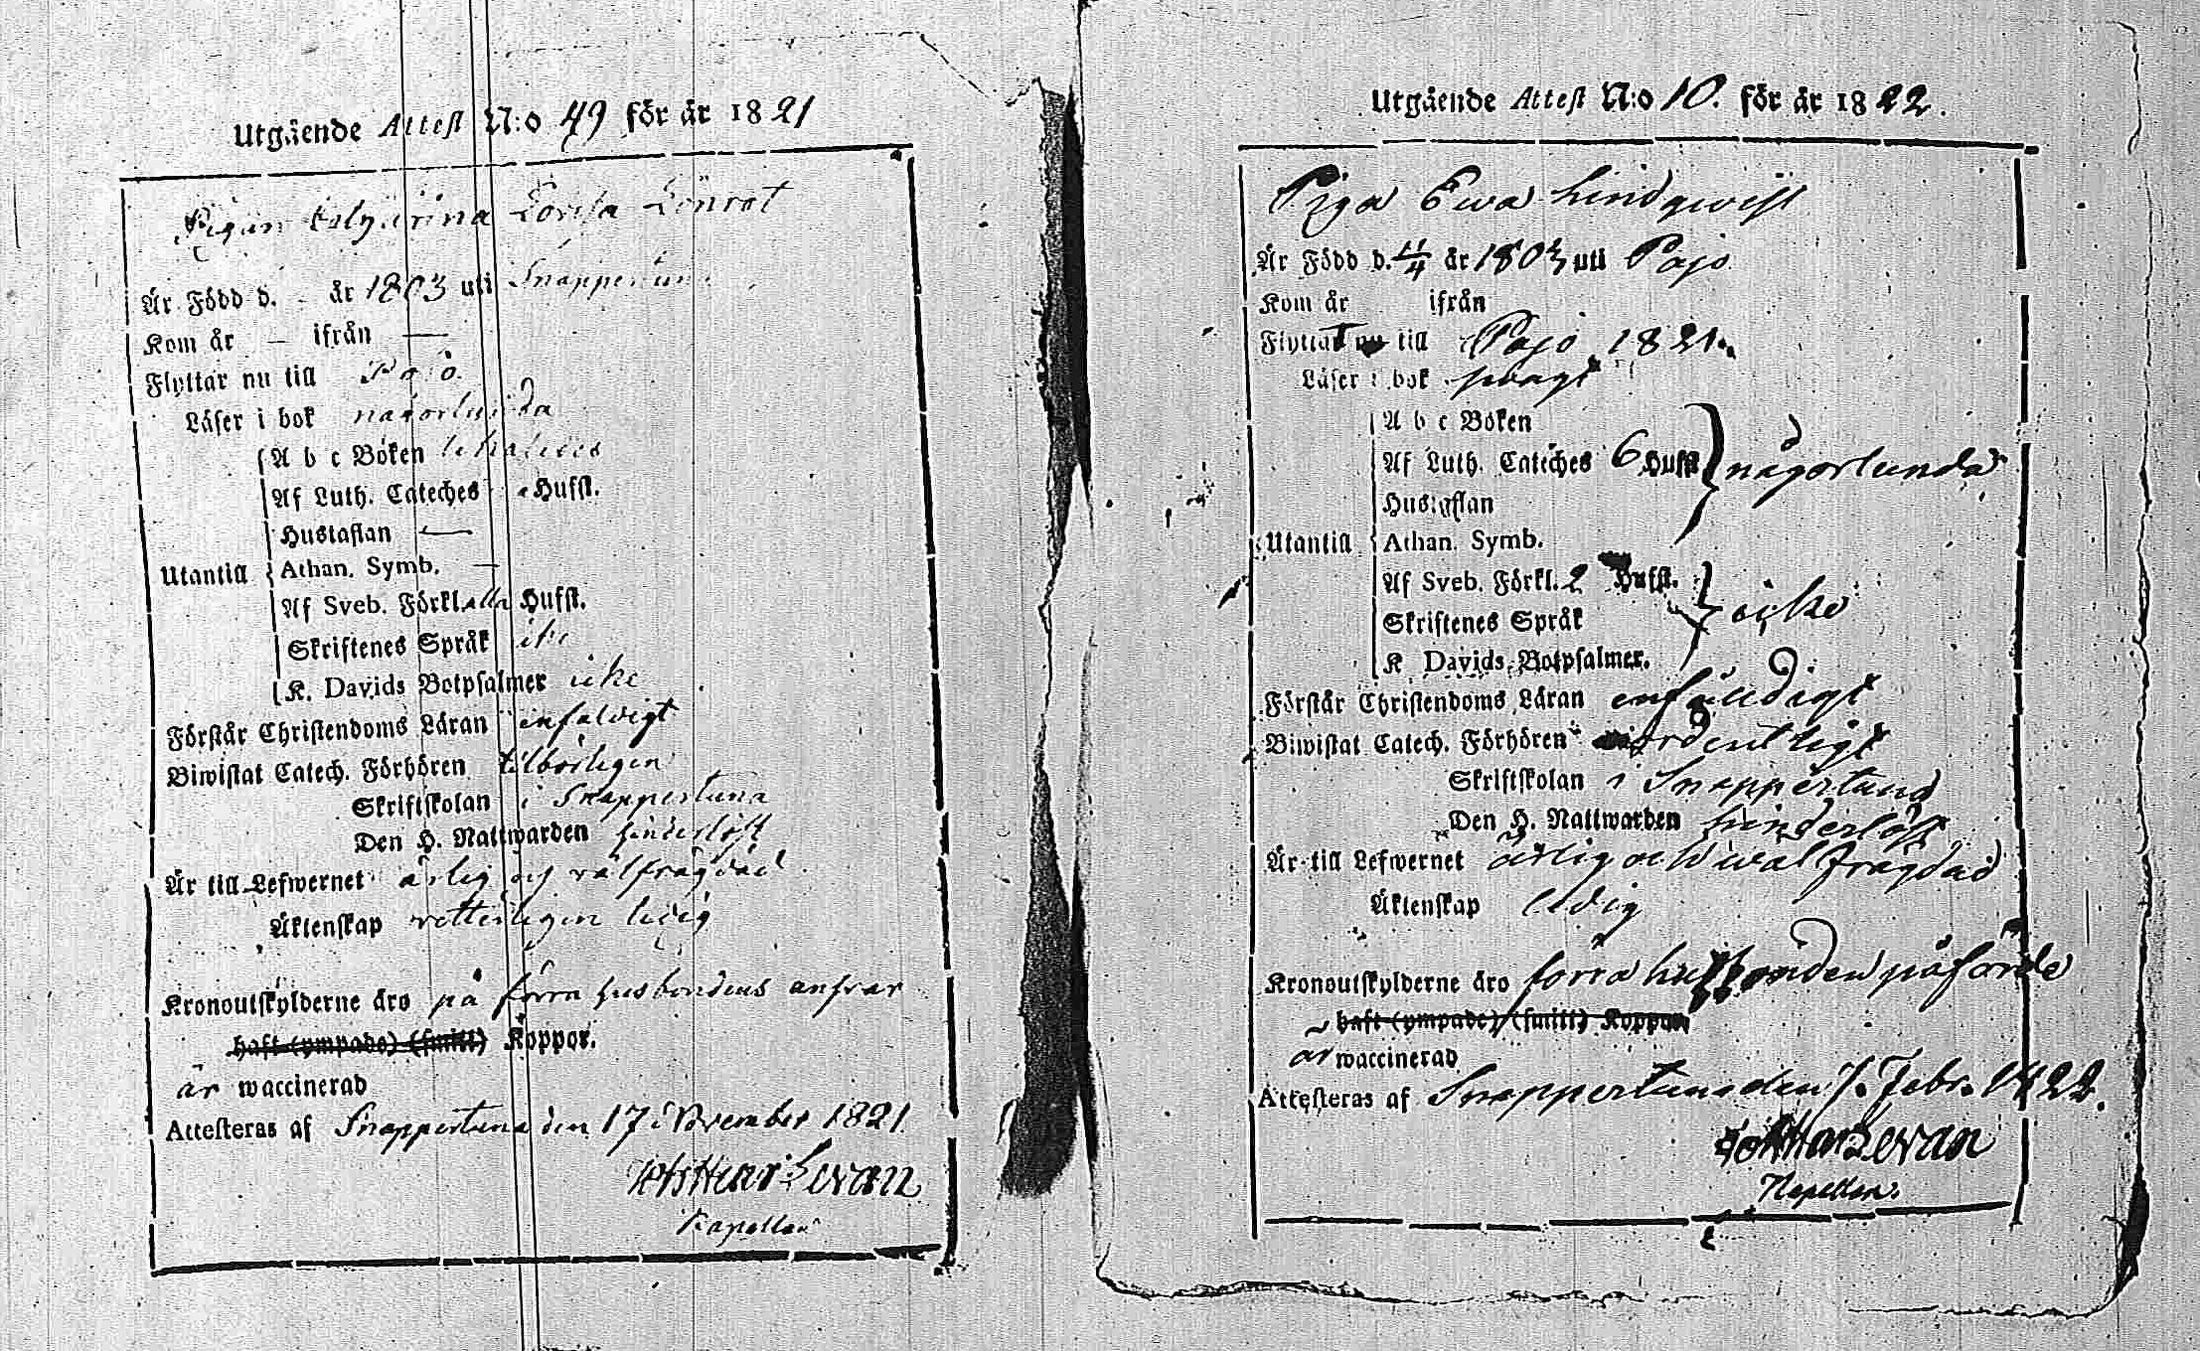 Utgående Attest N:o 49 för år 1821
Pigan Lovisa Lönrot
Är Född d. - år 1803 uti Snappertuna
Kom år — ifrån —
Flyttar nu till Pojo
Läser i bok någorlunda
A b c Boken
Af Luth. Cateches Hufst.
Hustaflan —
Utantill Athan. Symb. —
Af Sveb. Förkl. alla Hufst.
Skriftenes Språk icke
K. Davids Botpsalmer icke
Förstår Christendoms Läran enfaldigt
Biwistat Catech. Förhören tilbörligen
Skriftskolan i Snappertuna
Den H. Nattwarden hinderlöst
Är till Lefwernet ärlig och välfrägdad
Äktenskap ledig
Kronoutskylderne äro på förra husbondens ansvar
haft (ympade) (smitt) Koppor.
är waccinerad
Attesteras af Snappertuna den 17 November 1821
Kapellan
Utgående Attest N:o 10. för år 1822.
Piga Ewa Lindqwist
Är Född d. 11/4 år 1803 uti Pojo
Kom år ifrån
Flyttat till Pojo 1821.
Läser i bok swagt
A b c Boken
Af Luth. Cateches 6 Hufst. någorlunda
Hustaflan
Utantill Athan. Symb.
Af Sveb. Förkl. 2 Hufst.
Skriftenes Språk icke
K Davids Botpsalmer.
Förstår Christendoms Läran enfaldigt
Biwistat Catech. Förhören ordentligt
Skriftskolan i Snappertuna
Den H. Nattwarden hinderlöst
Är till Lefwernet ärlig och wälfrägdad
Äktenskap ledig
Kronoutskylderne äro förra husbonden påförde
haft (ympade) (smitt) Koppor
är waccinerad
Attesteras af Snappertuna den 7. Febr. 1822.
Kapellan.